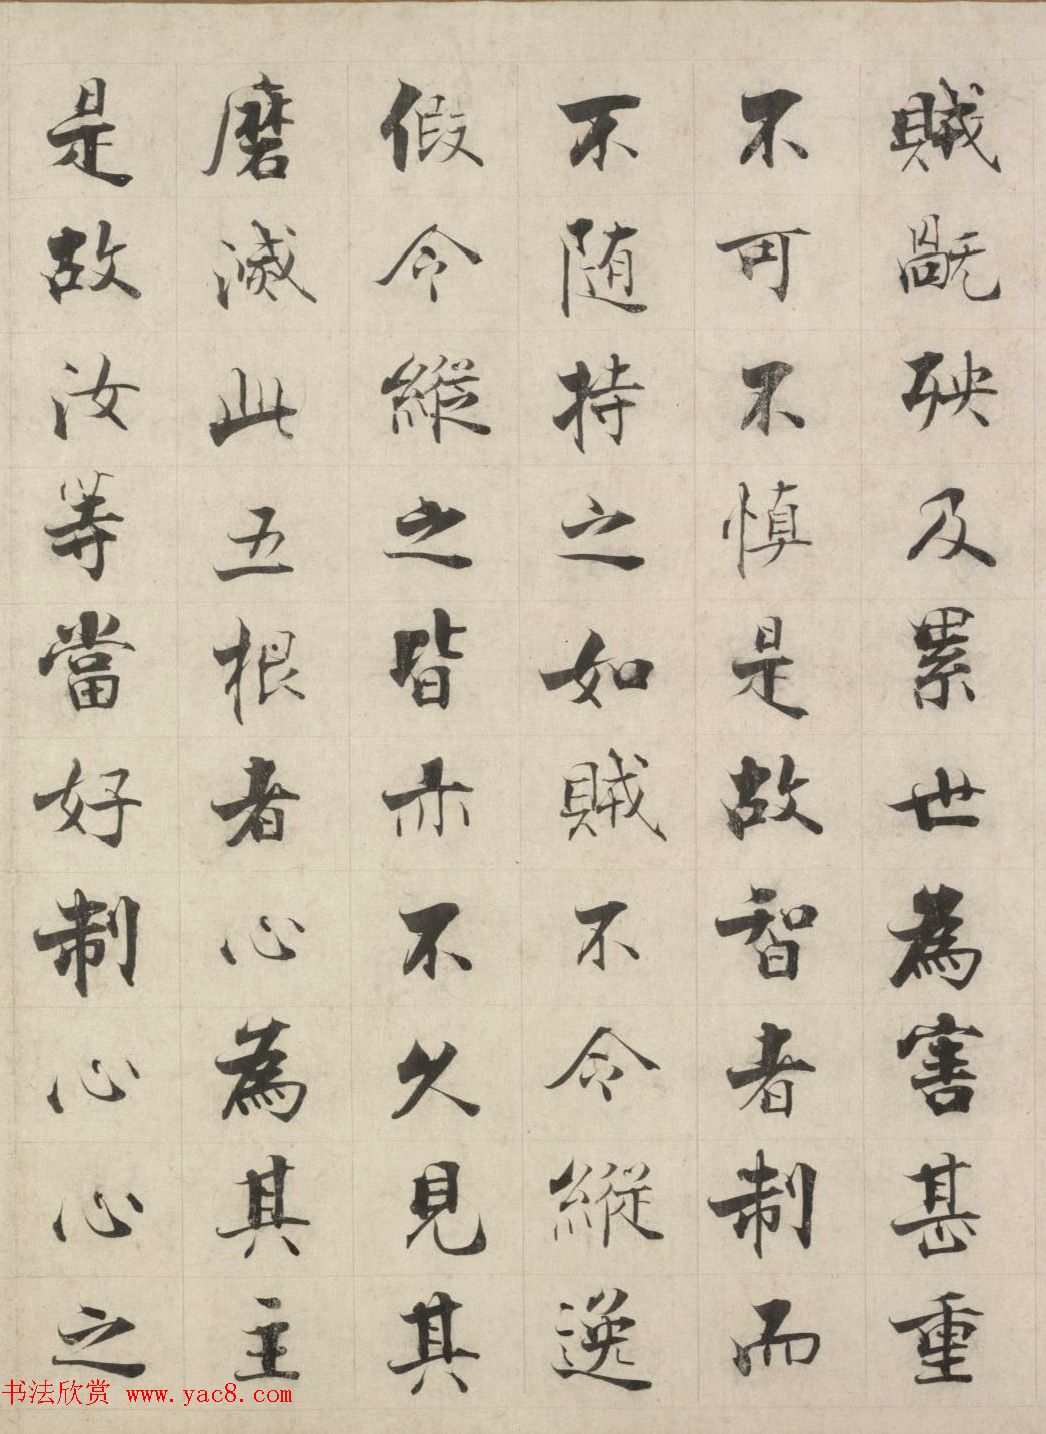 賊禍殃及累世為害甚重
不可不慎是故智者制而
不随持之如賊不令縱逸
假令縱之皆亦不久見其
磨滅此五根者心為其主
是故汝等當好制心心之
书法欣赏 www.yac8.com